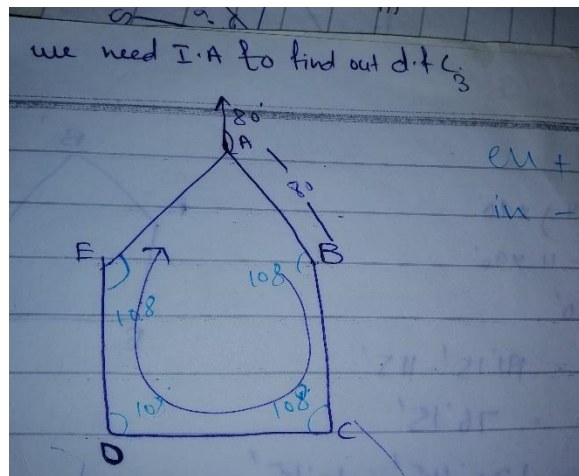 we need I.A to find out d.f
80°
A
80
eu +
in -
E
B
108
108
108
108
C
D